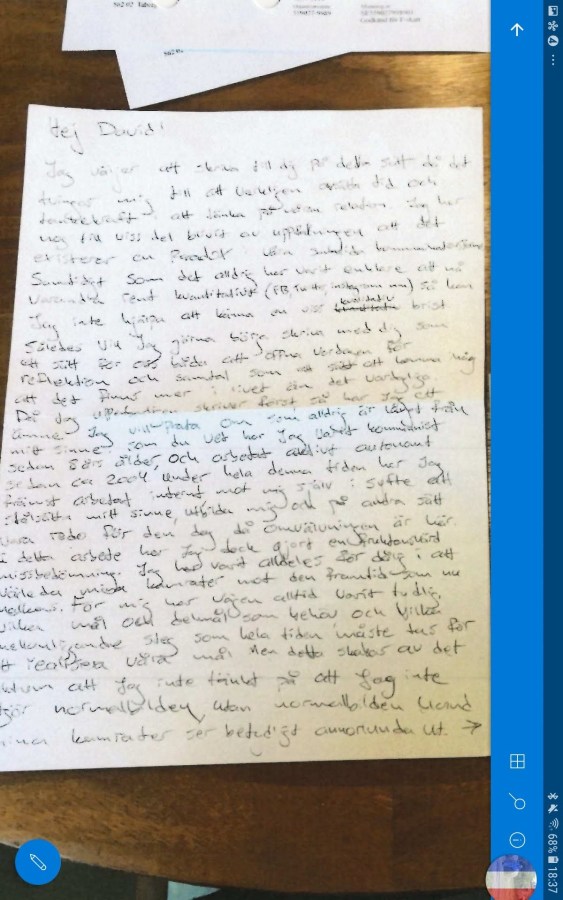 Hej David!
Jag väljer att skriva till dig på detta sätt då det
tvingar mig till att verkligen avsätta tid och
tankekraft i att tänka på vår relation. Jag har
nog till viss del brist av uppfattningen att det
existerar en Paradox i våra samtida
Samtidigt som det aldrig har varit enklare att nå
varandra rent kvantitativt (FB, Twitter, instagram mm) så kan
Jag inte hjälpa att känna en viss kvalitativ brist
Således vill Jag gärna börja skriva med dig som
ett sätt för oss båda att öppna vardagen för
reflektion och samtal som ett sätt att komma ihåg
att det finns mer i livet än det vardagliga.
Då Jag skriver först så har Jag ett
ämne Jag vill prata om som aldrig är långt från
mitt sinne. som du vet har Jag varit kommunist
sedan års ålder, och arbetat aktivt autonomt
sedan ca 2004. Under hela denna tiden har Jag
främst arbetat internt mot mig själv i syfte att
stålsätta mitt sinne, utbilda mig och på andra sätt
vara redo för den dag då omvälvningen är här.
i detta arbete har Jag dock gjort en
missbedömning. Jag har varit alldeles för dålig i att
vägleda mina kamrater mot den framtid som nu
nalkas. För mig har vägen alltid varit tydlig.
vilka mål och delmål som behöv och vilka
steg som hela tiden måste tas för
att realisera våra mål Men detta skakas av det
faktum att Jag inte tänkt på att Jag inte
utgör normalbilden, utan normalbilden bland
mina kamrater ser betydligt annorlunda ut. →
68% 18:37